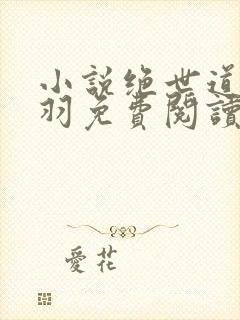 小説绝世道
羽免費閱讀
愛花